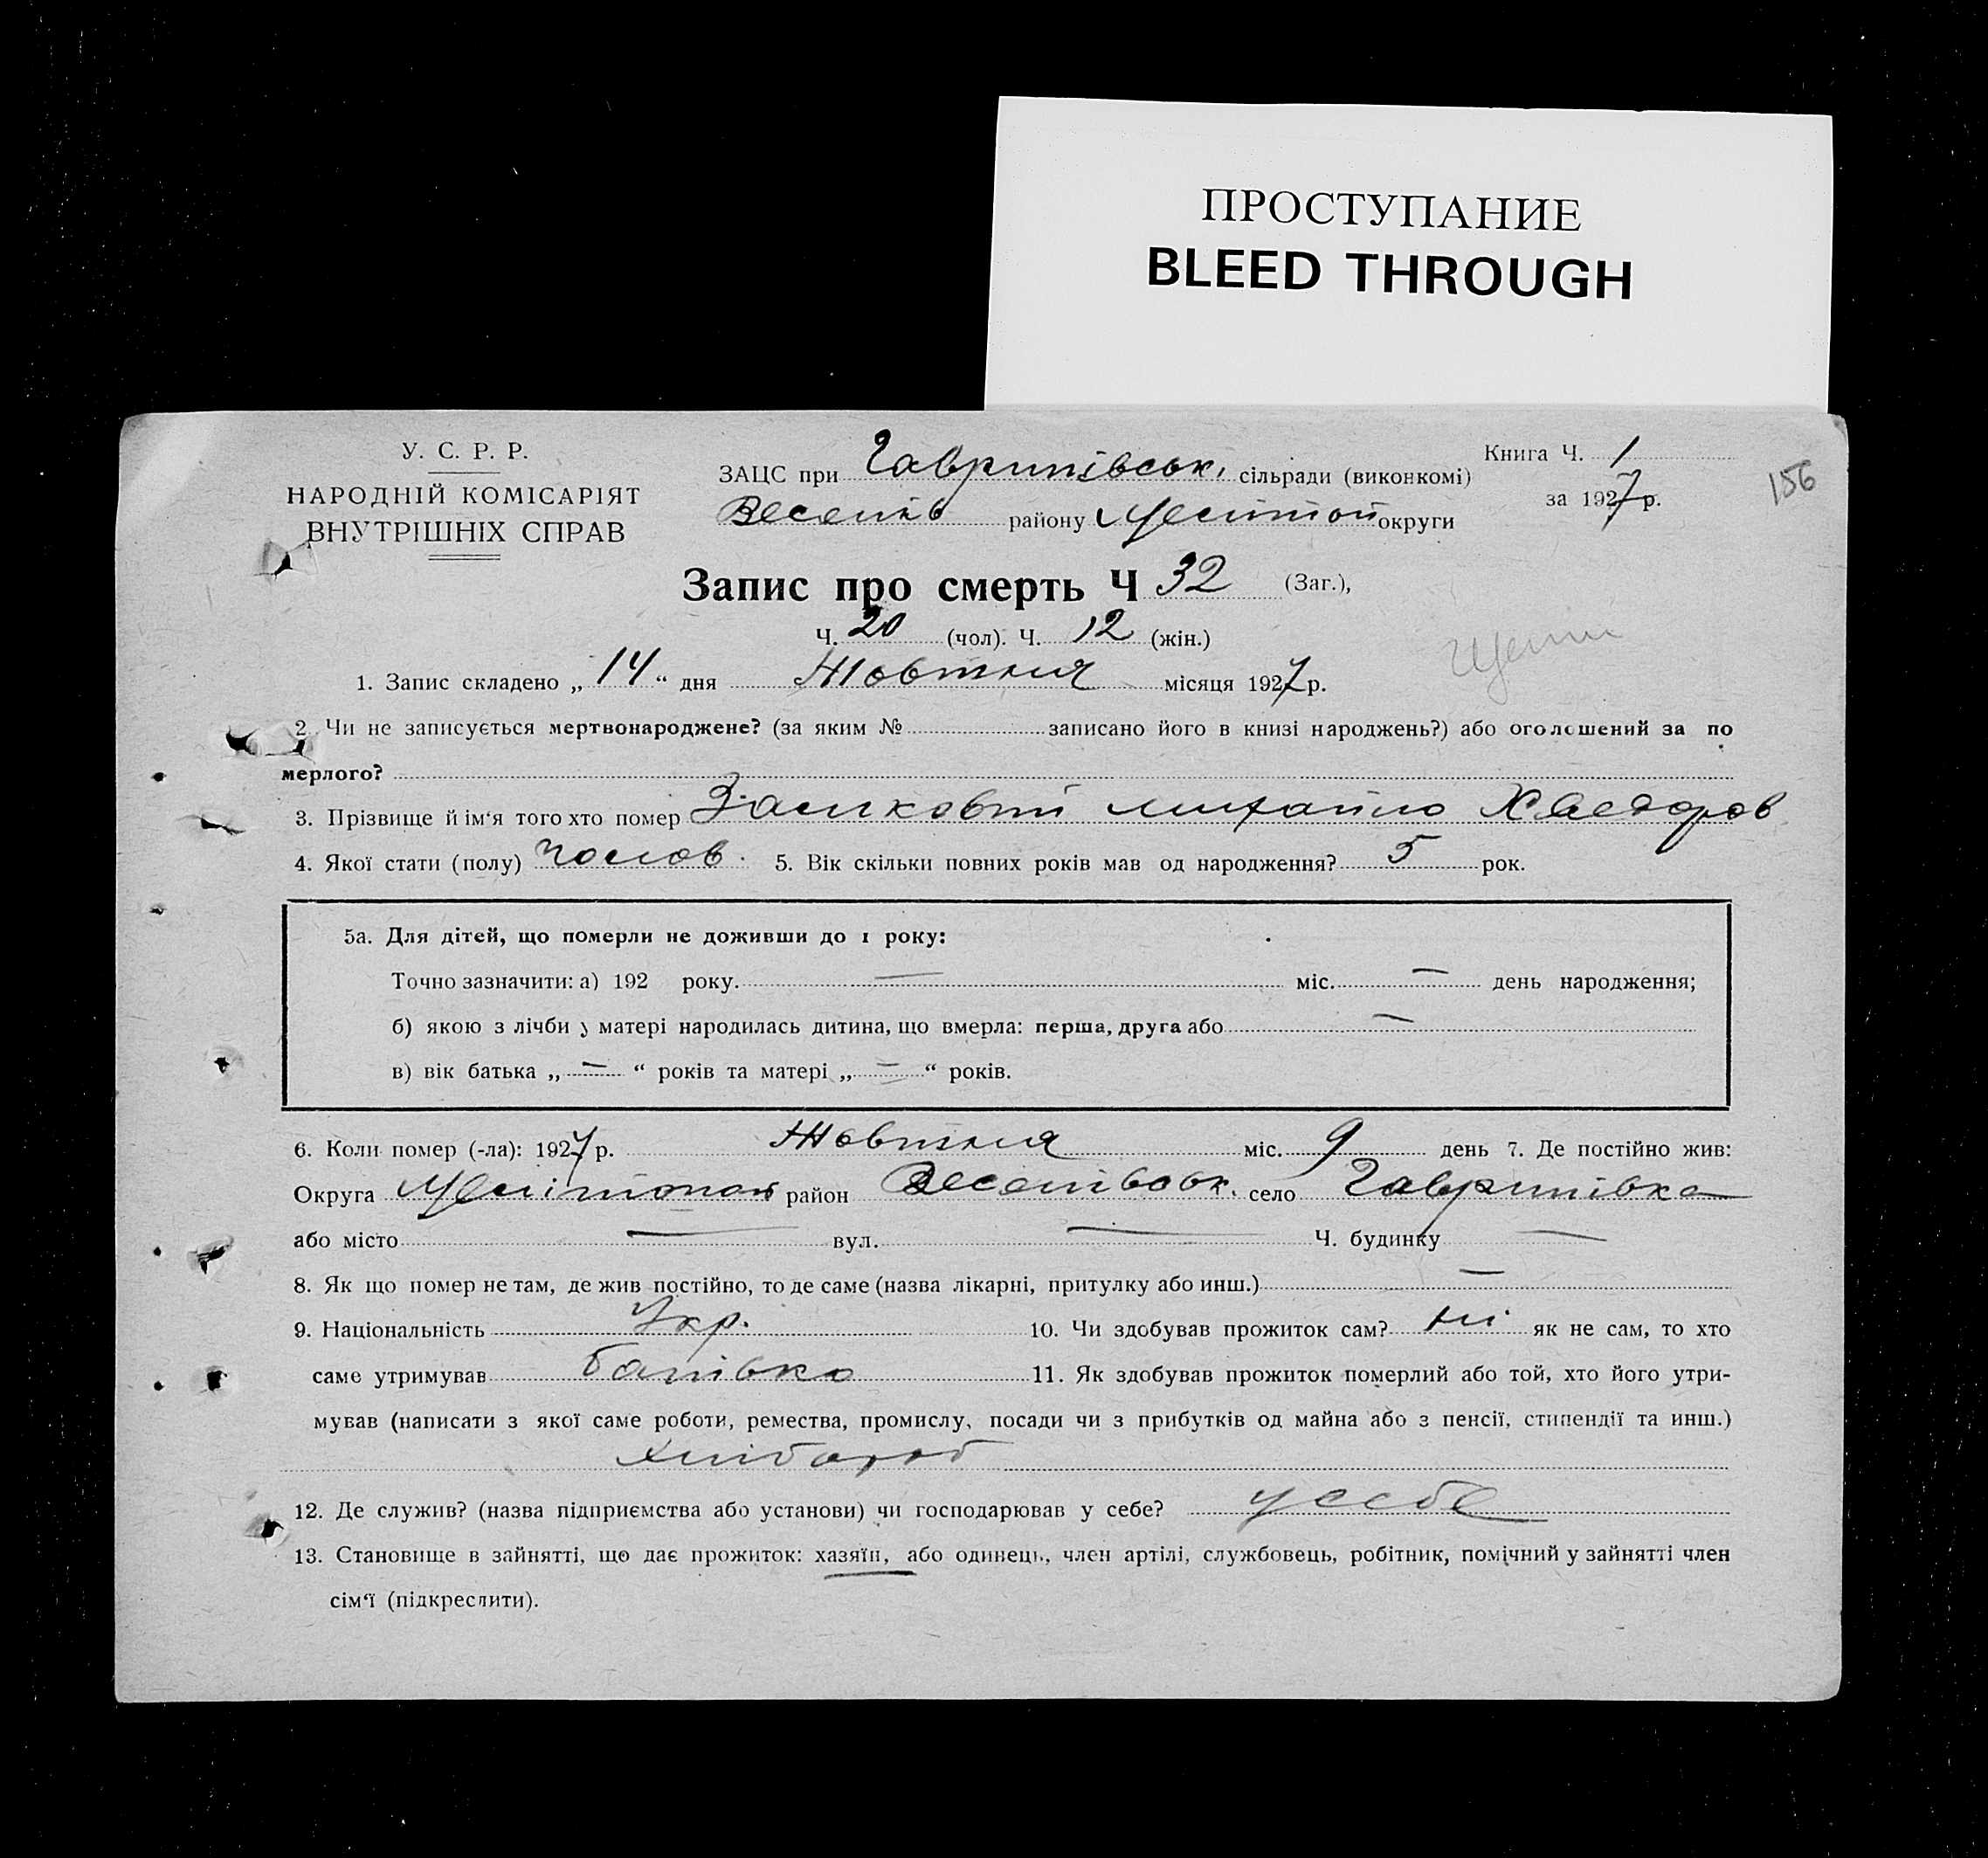 ПРОСТУПАНИЕ
BLEED THROUGH
У. С. Р. Р.
НАРОДНІЙ КОМІСАРІЯТ
ВНУТРІШНІХ СПРАВ
ЗАЦС при Гаврилівськ. сільради (виконкомі)
Веселів району Мелітоп округи
Книга Ч. 1
за 1927 р.
156
Запис про смерть Ч 32 (Заг.),
Ч. 20 (чол). Ч. 12 (жін.)
1. Запис складено „ 14 “ дня Жовтня місяця 1927 р.
2. Чи не записується мертвонароджене? (за яким № записано його в книзі народжень?) або оголошений за по
мерлого?
3. Прізвище й ім‘я того хто помер Михайло Хведоров
4. Якої стати (полу) чолов. 5. Вік скільки повних років мав од народження? 5 рок.
5а. Для дітей, що померли не доживши до 1 року:
Точно зазначити: а) 192 року. — міс. — день народження;
б) якою з лічби у матері народилась дитина, що вмерла: перша, друга або —
в) вік батька „ — “ років та матері „ — “ років.
6. Коли помер (-ла): 1927 р. Жовтня міс. 9 день 7. Де постійно жив:
Округа Мелітопол район Веселівськ. село Гаврилівка
або місто — вул. — Ч. будинку —
8. Як що помер не там, де жив постійно, то де саме (назва лікарні, притулку або инш.) —
9. Національність Укр. 10. Чи здобував прожиток сам? ні як не сам, то хто
саме утримував батівко 11. Як здобував прожиток померлий або той, хто його утри-
мував (написати з якої саме роботи, ремества, промислу, посади чи з прибутків од майна або з пенсії, стипендії та инш.)
хлібороб
12. Де служив? (назва підприємства або установи) чи господарював у себе? у себе
13. Становище в зайнятті, що дає прожиток: хазяїн, або одинець, член артілі, службовець, робітник, помічний у зайнятті член
сім‘ї (підкреслити).